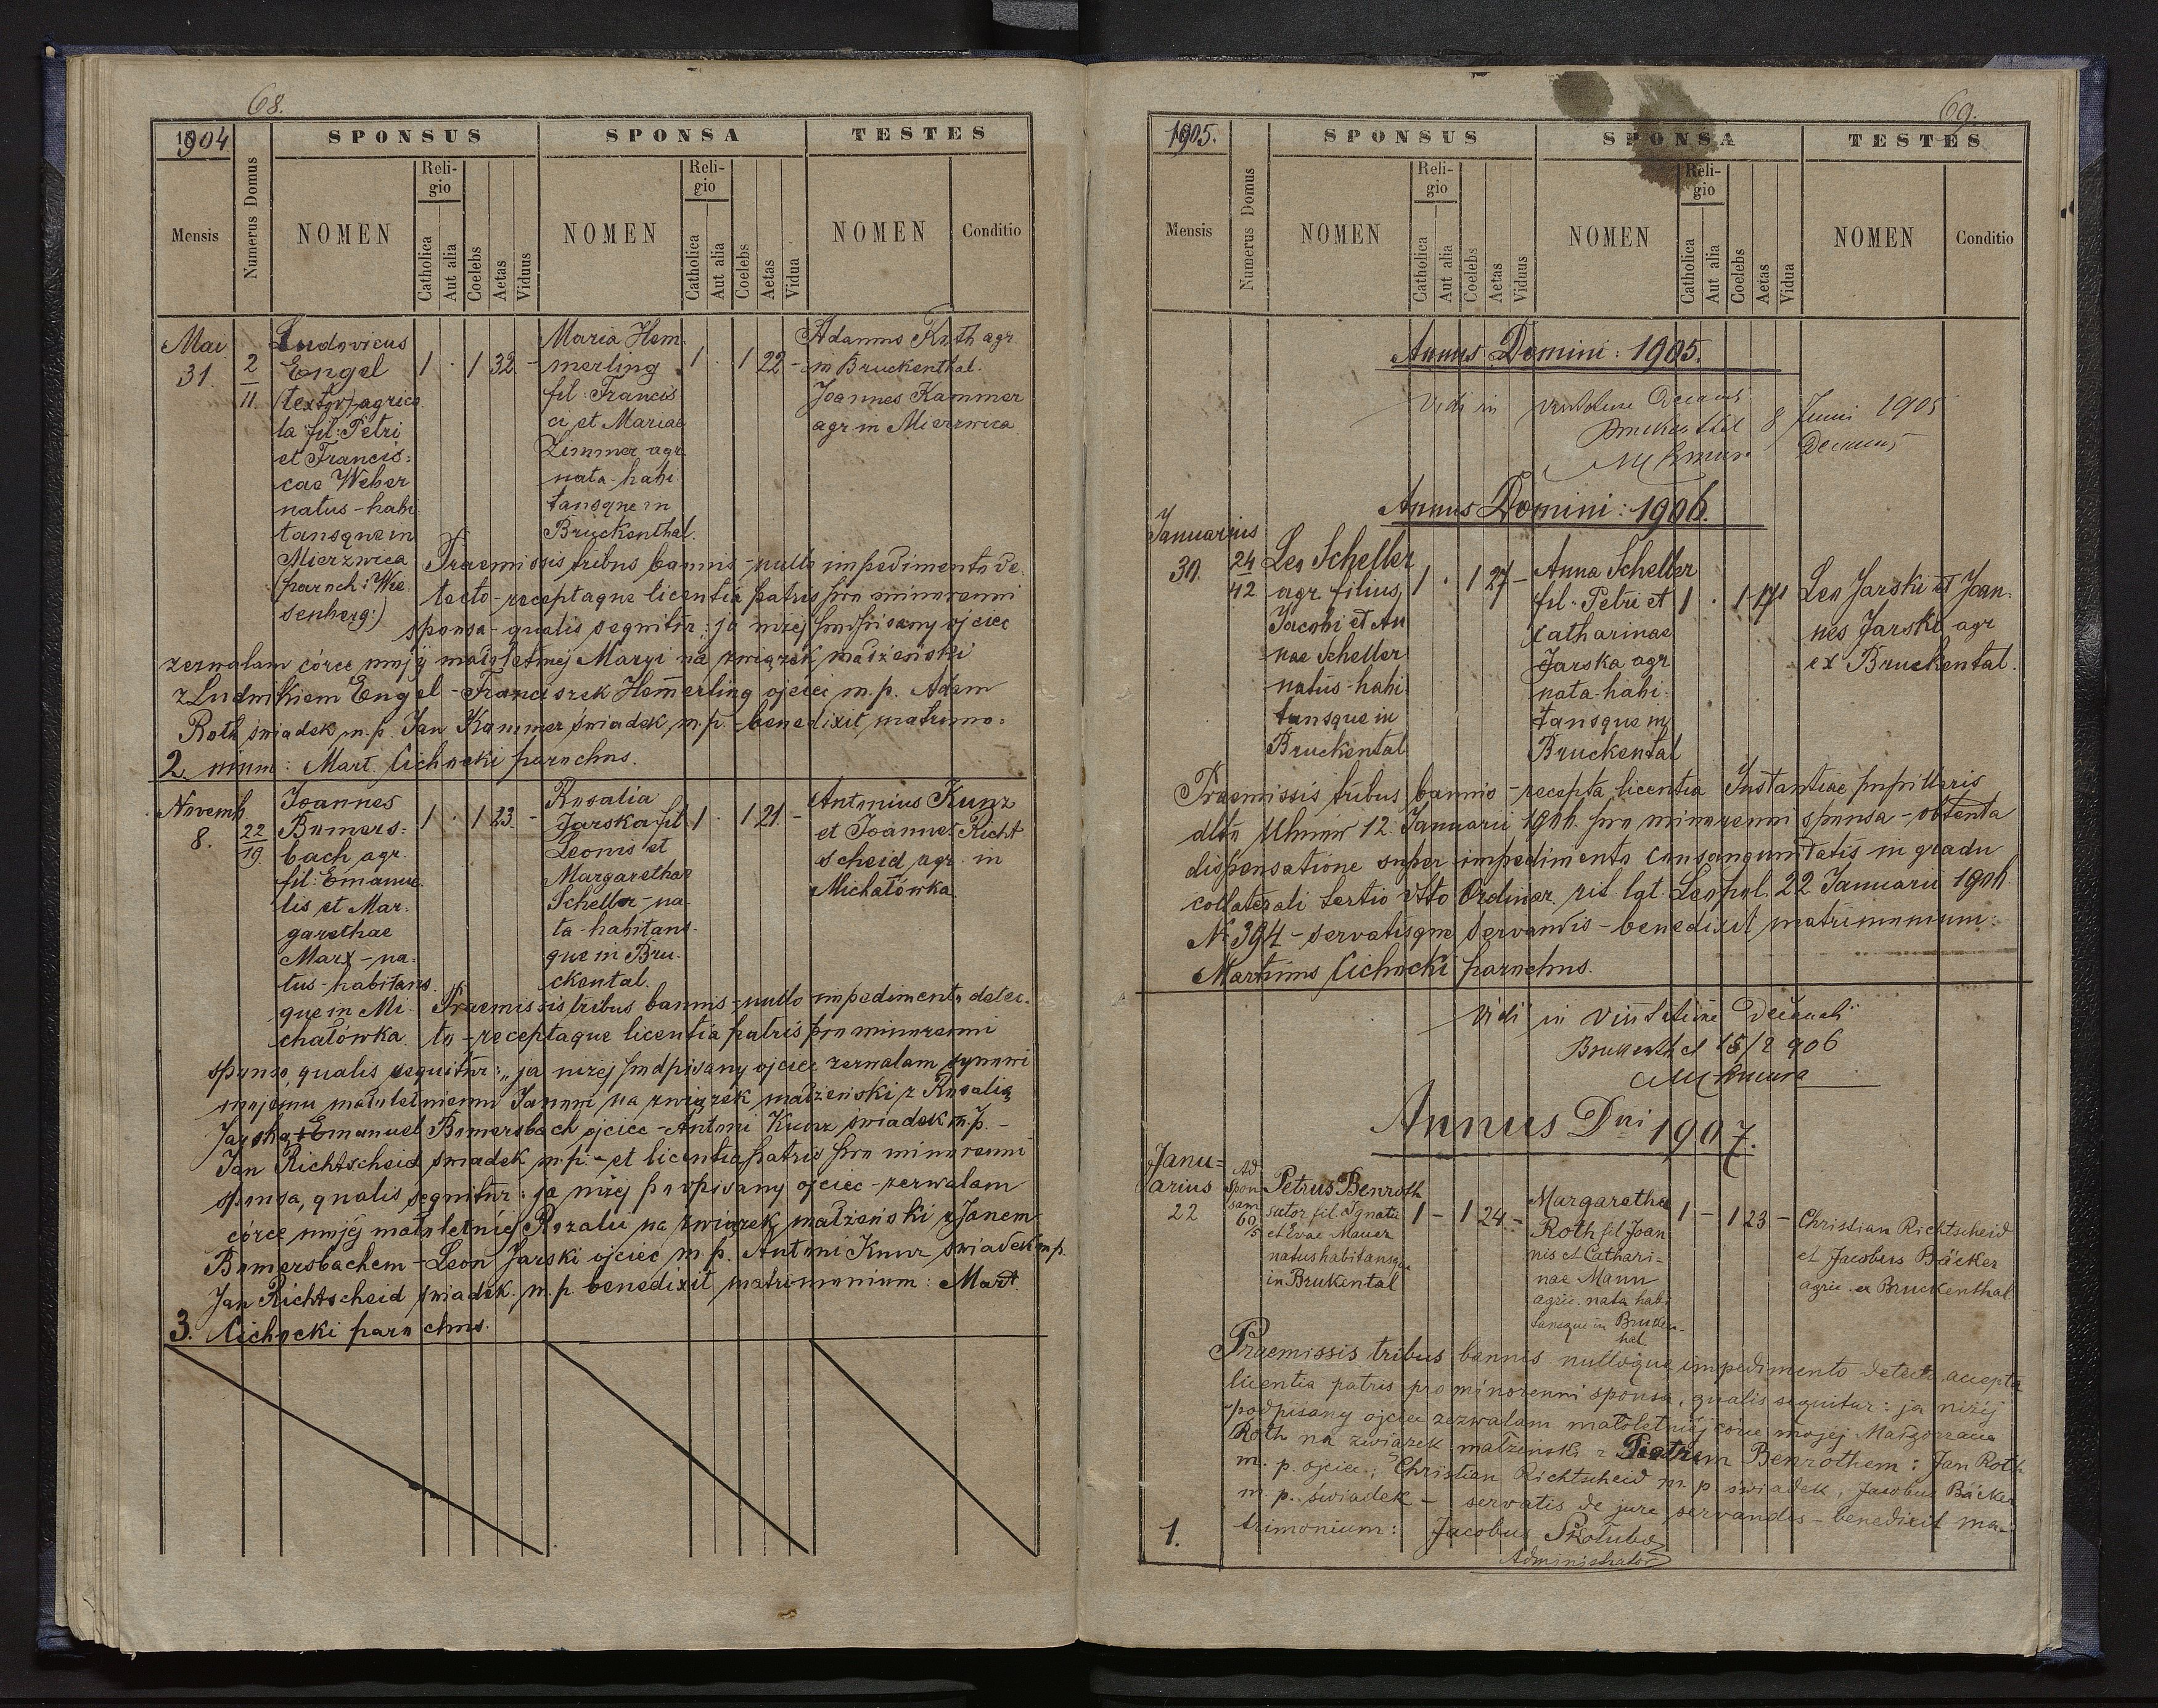 68.
1904
SPONSUS
SPONSA
TESTES
Mensis
Numerus Domus
NOMEN
Religio
Catholica
Aut alia
Coelebs
Aetas
Viduus
NOMEN
Religio
Catholica
Aut alia
Coelebs
Aetas
Vidua
NOMEN
Conditio
Mai
31.
2
11.
Ludovicus
Engel
(textor) agrico
la fil: Petri
et Francis:
cae Weber
natus-habi
tansque in
Mierzwica
(paroch: Wie
senberg:)
1 . 1 32. -
Maria Hem
merling
fil: Francis
ci et Mariae
Zimmer agr
nata-habi
tansque in
Bruckenthal.
1 . 1 22 -
Adamus Roth agr
in Bruckenthal.
Joannes Kammer
agr in Mierzwica
Praemissis tribus bannis - nullo impedimento de
tecto - receptaque licentia patris pro minorenni
sponsa - qualis sequitur: ja niżej podpisany ojciec
zezwalam córce mojej małoletniej Maryi na związek małżeński
z Ludwikiem Engel - Franciszek Hemerling ojciec m.p. Adam
Roth świadek m.p. Jan Kammer świadek m.p. - benedixit matrimo=
2. nium: Mart. Cichocki parochus.
Novemb
8.
22
19.
Joannes
Bumers=
bach agr.
fil: Emanue
lis et Mar:
garethae
Marx - na:
tus-habitans
que in Mi
chałówka.
1 . 1 23 -
Rosalia
Jarska fil
Leonis et
Margarethae
Scheller - na
ta-habitans
que in Bru
ckental.
1 . 1 21. -
Antonius Kunz
et Joannes Richt
scheid agr. in
Michałówka
Praemissis tribus bannis - nullo impedimento detec.
to - receptaque licentia patris pro minorenni
sponso, qualis sequitur: „ja niżej podpisany ojciec zezwalam synowi
mojemu małoletniemu Janowi na związek małżeński z Rosalią
Jarską Emanuel Bumersbach ojciec - Antoni Kunz świadek m.p. -
Jan Richtscheid świadek m.p. - et licentia patris pro minorenni
sponsa, qualis sequitur: ja niżej podpisany ojciec - zezwalam
córce mojej małoletniej Rozalii na związek małżeński z Janem
Bumersbachem - Leon Jarski ojciec m.p. Antoni Kunz świadek m.p.
Jan Richtscheid świadek. m.p. benedixit matrimonium: Mart
3. Cichocki parochus.
69.
1905.
SPONSUS
SPONSA
TESTES
Mensis
Numerus Domus
NOMEN
Religio
Catholica
Aut alia
Coelebs
Aetas
Viduus
NOMEN
Religio
Catholica
Aut alia
Coelebs
Aetas
Vidua
NOMEN
Conditio
Annus Domini: 1905.
Vidi in
8 Junii 1905
Decanus
Annus Domini: 1906.
Januarius
30.
24
42
Leo Scheller
agr. filius
Jacobi et An
nae Scheller
natus-habi:
tansque in
Bruckental
1 . 1 27 -
Anna Scheller
fil: Petri et
Catharinae
Jarska agr
nata-habi:
tansque in
Bruckental
1 . 1 17
Leo Jarski et Joan:
nes Jarski agr
ex Bruckental.
Praemissis tribus bannis - recepta licentia Instantiae pupillaris
dtto Uhnów 12. Januarii 1906. pro minorenni sponsa - obtenta
dispensatione super impedimento consanguinitatis in gradu
collaterali tertio dtto Ordinar. rit. lat. Leopol. 22 Januarii 1906.
N 394 - servatisque servandis - benedixit matrimonium:
Martinus Cichocki parochus.
Vidi in visitatione Decanali
Bruckenthal 15/2 906
Annus Dni 1907.
Janu=
arius
22
Ad
spon
sam
60
Petrus Benroth
sutor fil. Ignatii
et Evae Mauer
natus habitansque
in Brukental
1 - 1 24. -
Margaretha
Roth fil Joan
nis et Cathari-
nae Mann
agric. nata habi
tansque in Bruken-
hal
1 - 1 23 -
Christian Richtscheid
et Jacobus Bäcker
agric. ex Bruckenthal
Praemissis tribus bannis nulloque impedimento detecto, accepta
licentia patris pro minorenni sponsa, qualis sequitur: ja niżej
podpisany ojciec zezwalam małoletniej córce mojej Małgorzacie
Roth na związek małżeński z Piotrem Benrothem: Jan Roth
m. p. ojciec; Christian Richtscheid m. p. świadek, Jacobus Bäcker
m. p. świadek - servatis de jure servandis - benedixit ma-
1. trimonium: Jacobus
Administrator